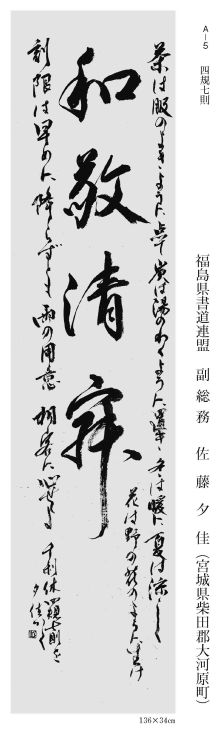 A-5 四規七則
福島県書道連盟 副総務 佐藤夕佳（宮城県柴田郡大河原町）
茶は服のよきように点て 炭は湯のわくように置き 冬は暖に 夏は涼しく
花は野の花のように生け
和敬清寂
刻限は早めに 降らずとも雨の用意 相客に心せよ
千利休
夕佳
136×34cm